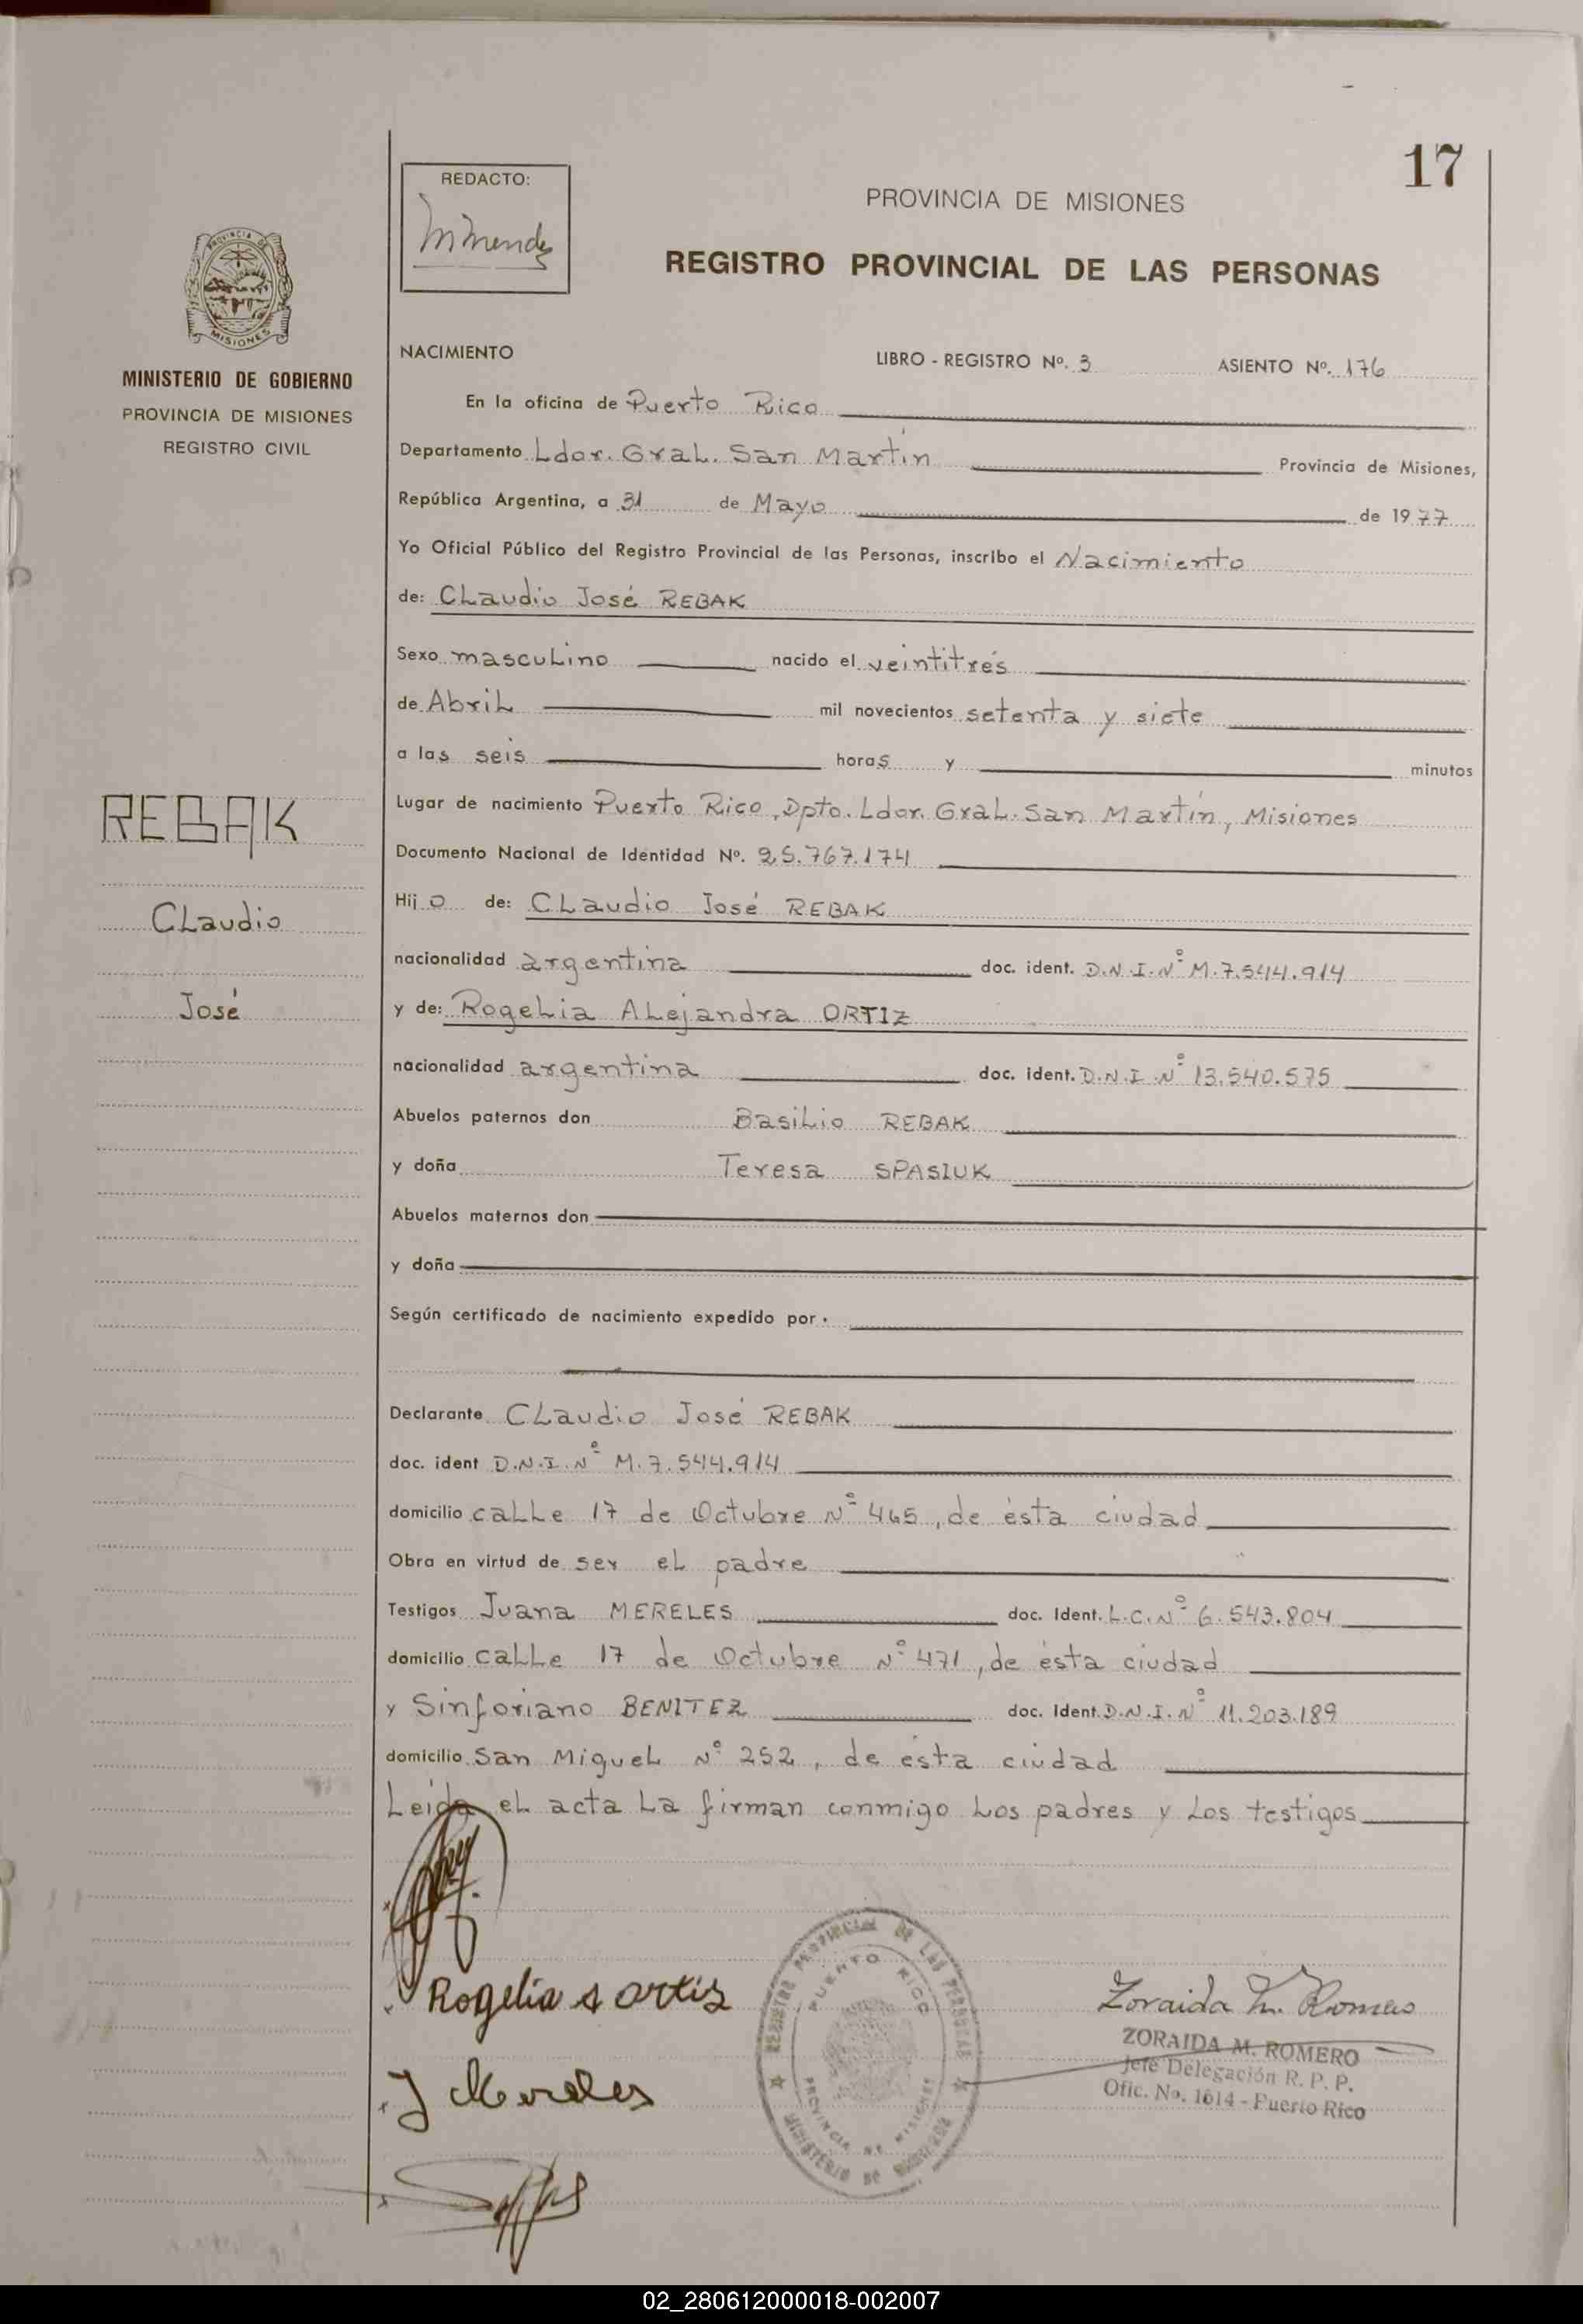 17
REDACTO:
PROVINCIA DE MISIONES
REGISTRO PROVINCIAL DE LAS PERSONAS
PROVINCIA DE
MISIONES
MINISTERIO DE GOBIERNO
PROVINCIA DE MISIONES
REGISTRO CIVIL
NACIMIENTO LIBRO - REGISTRO Nº. 3 ASIENTO Nº. 176
En la oficina de Puerto Rico
Departamento Ldor. Gral. San Martín Provincia de Misiones,
República Argentina, a 31 de Mayo de 1977
Yo Oficial Público del Registro Provincial de las Personas, inscribo el Nacimiento
de: Claudio José REBAK
Sexo masculino nacido el veintitrés
de Abril mil novecientos setenta y siete
a las seis horas y minutos
REBAK
Claudio
José
Lugar de nacimiento Puerto Rico, Dpto. Ldor. Gral. San Martín, Misiones
Documento Nacional de Identidad Nº. 25.767.174
Hijo de: Claudio José REBAK
nacionalidad argentina doc. ident. D.N.I. Nº M.7.544.914
y de: Rogelia Alejandra ORTIZ
nacionalidad argentina doc. ident. D.N.I Nº 13.540.575
Abuelos paternos don Basilio REBAK
y doña Teresa SPASIUK
Abuelos maternos don
y doña
Según certificado de nacimiento expedido por
Declarante Claudio José REBAK
doc. ident D.N.I. Nº M.7.544.914
domicilio calle 17 de Octubre Nº 465, de ésta ciudad
Obra en virtud de ser el padre
Testigos Juana MERELES doc. Ident. L.C. Nº 6.543.804
domicilio calle 17 de Octubre Nº 471, de ésta ciudad
y Sinforiano BENITEZ doc. Ident. D.N.I. Nº 11.203.189
domicilio San Miguel Nº 252, de ésta ciudad
Leida el acta la firman conmigo los padres y los testigos
Rogelia A ortiz
J Mereles
REGISTRO PROVINCIAL DE LAS PERSONAS
PUERTO RICO
PROVINCIA DE MISIONES
MINISTERIO DE GOBIERNO
Zoraida M. Romero
ZORAIDA M. ROMERO
Jefe Delegación R. P. P.
Ofic. No. 1614 - Puerto Rico
02_280612000018-002007